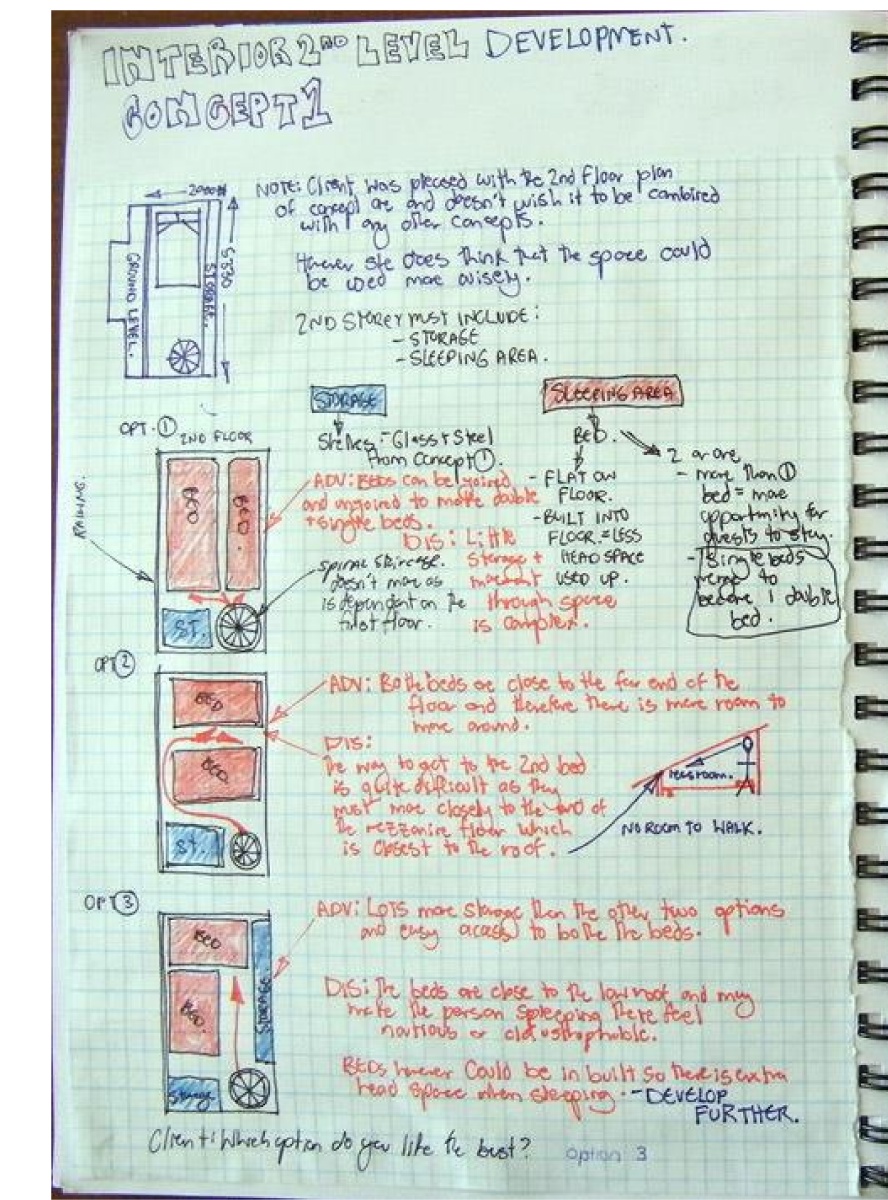 INTERIOR 2ND LEVEL DEVELOPMENT.
CONCEPT 1
2000
5550
STORAGE.
GROUND LEVEL.
NOTE: Client was pleased with the 2nd Floor plan
of concept one and doesn't wish it to be combined
with any other concepts.
However she does think that the space could
be used more wisely.
2ND STOREY MUST INCLUDE:
- STORAGE
- SLEEPING AREA.
STORAGE
Shelves - Glass + Steel
From Concept 1.
SLEEPING AREA
BED.
- FLAT ON
FLOOR.
- BUILT INTO
FLOOR. = LESS
HEAD SPACE
USED UP.
2 or one
- more than 1
bed = more
opportunity for
guests to stay.
- Single beds
merge to
become 1 double
bed.
OPT. 1 2ND FLOOR
RAILING.
BED
BED.
ST.
ADV: BEDS can be joined
and unjoined to make double
+ single beds.
DIS: Little
Storage +
movement
through space
is complex.
spiral staircase.
doesn't move as
is dependent on the
first floor.
OPT 2
BED
BED.
ST.
ADV: Both beds are close to the far end of the
floor and therefore there is more room to
move around.
DIS:
The way to get to the 2nd bed
is quite difficult as they
must move closely to the end of
the mezzanine floor which
is closest to the roof.
less room.
NO ROOM TO WALK.
OPT 3
BED
BED.
STORAGE
Storage
ADV: LOTS more storage then the other two options
and easy access to both the beds.
DIS: The beds are close to the low roof and may
make the person spleeping there feel
nautious or claustrophobic.
BEDS however could be in built so there is extra
head space when sleeping. - DEVELOP
FURTHER.
Client: Which option do you like the best? option 3